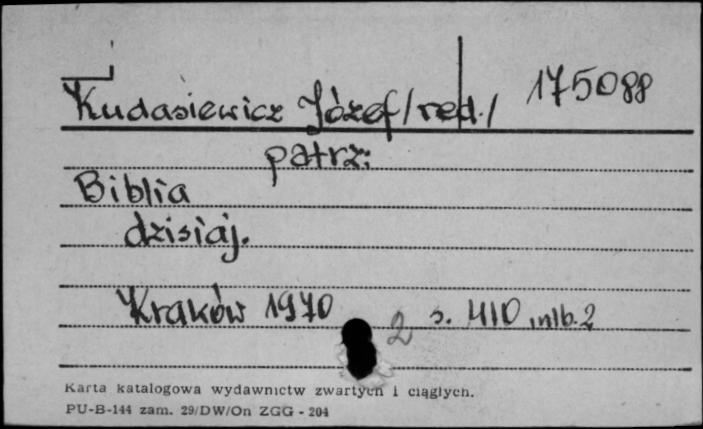 Kudasiewicz Józef /red./ 175088
patrz:
Biblia
dzisiaj.
Kraków 1970 2 s. 410, nlb. 2
Karta katalogowa wydawnictw zwartych i ciągłych.
PU-B-144 zam. 29/DW/On ZGG - 204